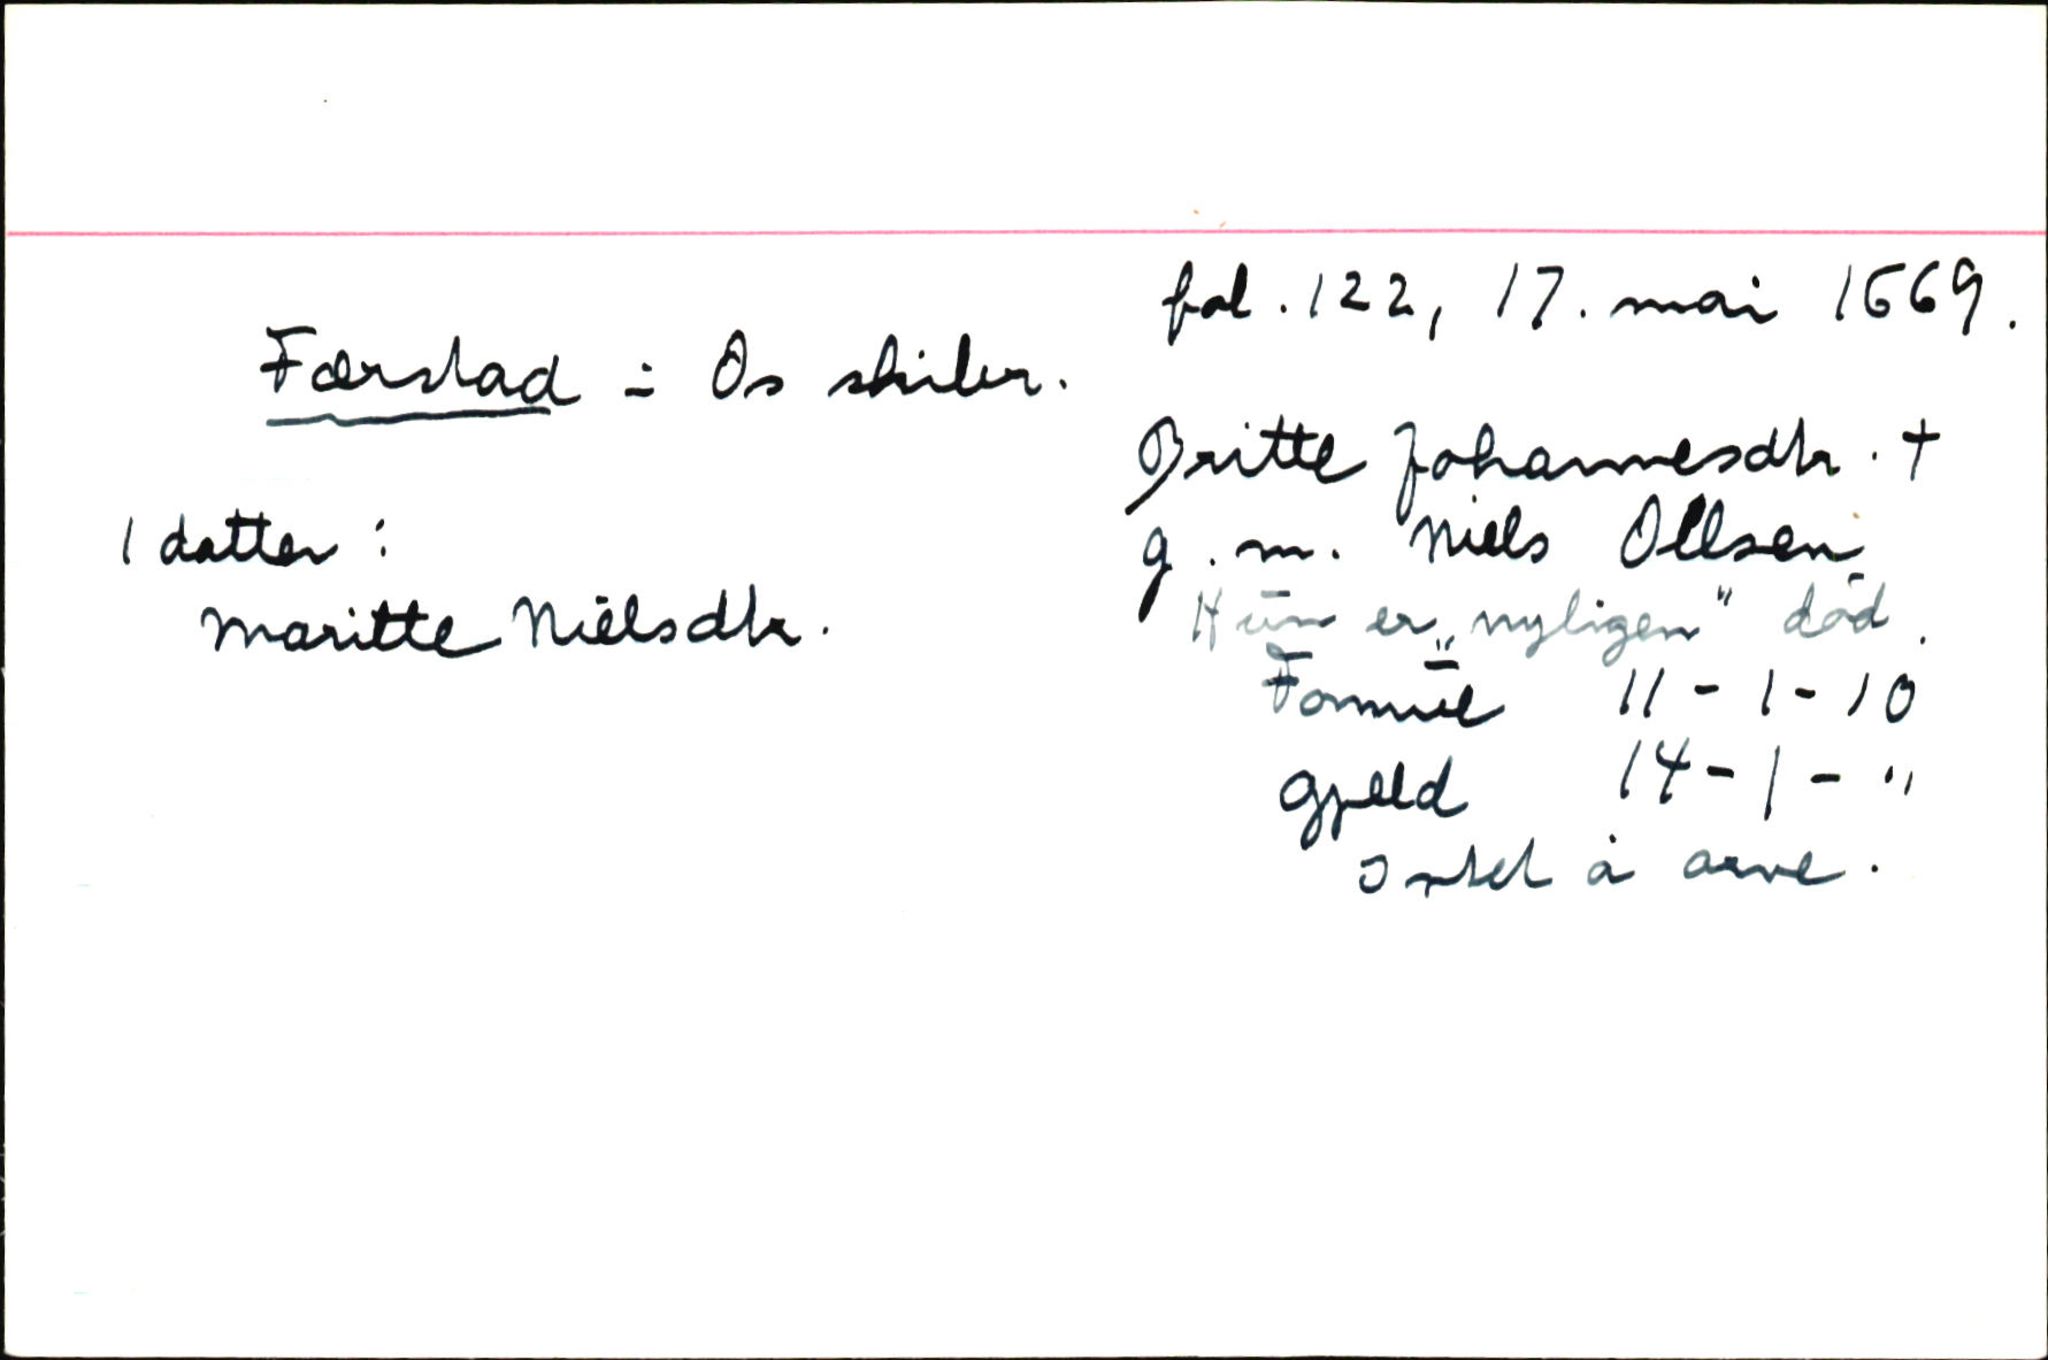 fol. 122, 17. mai 1669.
Færstad = Os skibr.
Britte Johannesdtr. †
g. m. Niels Ollsen
Hun er „nyligen" død.
Formue 11 - 1 - 10
Gjeld 14 - 1 - "
Intet å arve.
1 datter:
Maritte Nielsdtr.